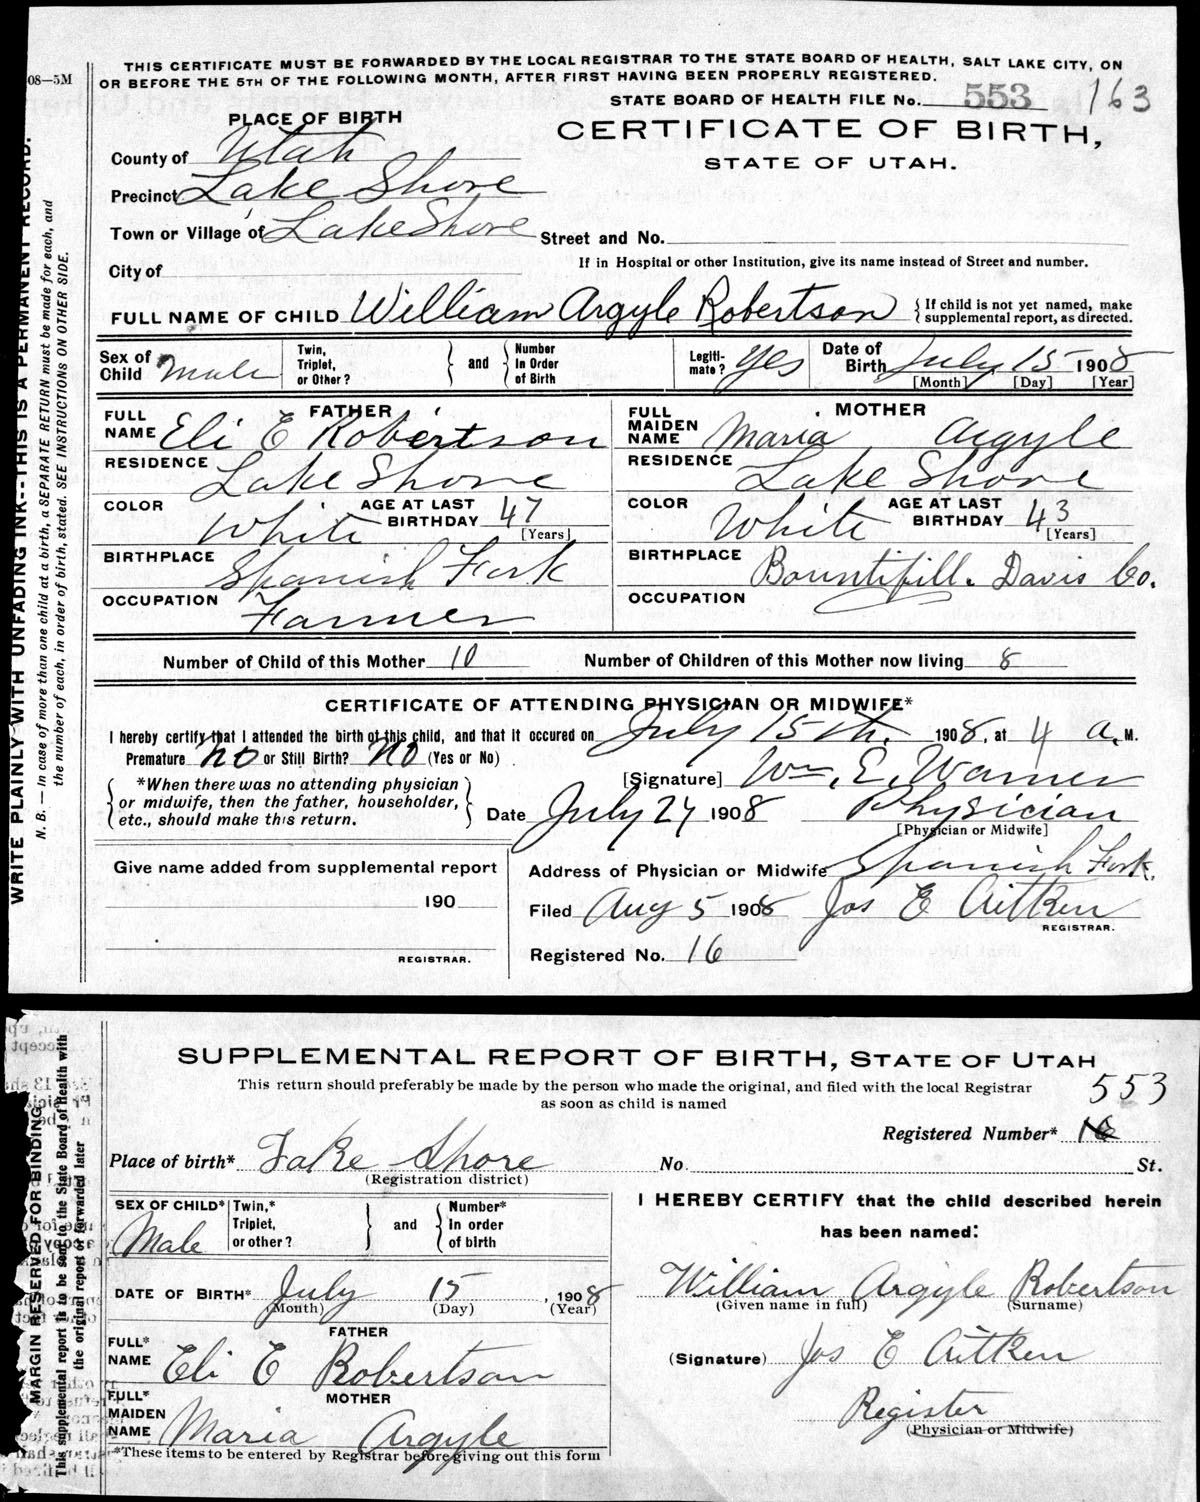 08—5M
THIS CERTIFICATE MUST BE FORWARDED BY THE LOCAL REGISTRAR TO THE STATE BOARD OF HEALTH, SALT LAKE CITY, ON
OR BEFORE THE 5TH OF THE FOLLOWING MONTH, AFTER FIRST HAVING BEEN PROPERLY REGISTERED.
STATE BOARD OF HEALTH FILE No. 553 163
PLACE OF BIRTH
CERTIFICATE OF BIRTH,
STATE OF UTAH.
County of Utah
Precinct Lake Shore
Town or Village of Lake Shore Street and No.
City of If in Hospital or other Institution, give its name instead of Street and number.
FULL NAME OF CHILD William Argyle Robertson { If child is not yet named, make
supplemental report, as directed.
Sex of Child Male Twin, Triplet, or Other? } and { Number In Order of Birth Legiti-mate? Yes Date of Birth July 15 1908
[Month] [Day] [Year]
FATHER
FULL NAME Eli E Robertson
RESIDENCE Lake Shore
COLOR White AGE AT LAST BIRTHDAY 47 [Years]
BIRTHPLACE Spanish Fork
OCCUPATION Farmer
MOTHER
FULL MAIDEN NAME Maria Argyle
RESIDENCE Lake Shore
COLOR White AGE AT LAST BIRTHDAY 43 [Years]
BIRTHPLACE Bountifill. Davis Co.
OCCUPATION
Number of Child of this Mother 10 Number of Children of this Mother now living 8
CERTIFICATE OF ATTENDING PHYSICIAN OR MIDWIFE*
I hereby certify that I attended the birth of this child, and that it occured on July 15th. 1908, at 4 a. M.
Premature No or Still Birth? No (Yes or No)
*When there was no attending physician
or midwife, then the father, householder,
etc., should make this return.
[Signature] Wm. E. Warner
Date July 27 1908 Physician
[Physician or Midwife]
Give name added from supplemental report
190
REGISTRAR.
Address of Physician or Midwife Spanish Fork.
Filed Aug 5 1908 Jos E Aitken
REGISTRAR.
Registered No. 16
WRITE PLAINLY WITH UNFADING INK--THIS IS A PERMANENT RECORD.
N. B. — In case of more than one child at a birth, a SEPARATE RETURN must be made for each, and
the number of each, in order of birth, stated. SEE INSTRUCTIONS ON OTHER SIDE.
SUPPLEMENTAL REPORT OF BIRTH, STATE OF UTAH
This return should preferably be made by the person who made the original, and filed with the local Registrar
as soon as child is named
553
Registered Number* 16
Place of birth* Lake Shore No. St.
(Registration district)
SEX OF CHILD* Male Twin,* Triplet, or other? } and { Number* In order of birth
DATE OF BIRTH* July 15, 1908
(Month) (Day) (Year)
FATHER
FULL* NAME Eli E Robertson
MOTHER
FULL* MAIDEN NAME Maria Argyle
*These items to be entered by Registrar before giving out this form
I HEREBY CERTIFY that the child described herein
has been named:
William Argyle Robertson
(Given name in full) (Surname)
(Signature) Jos E Aitken
Register
(Physician or Midwife)
MARGIN RESERVED FOR BINDING
This supplemental report is to be sent to the State Board of Health with
the original report or forwarded later